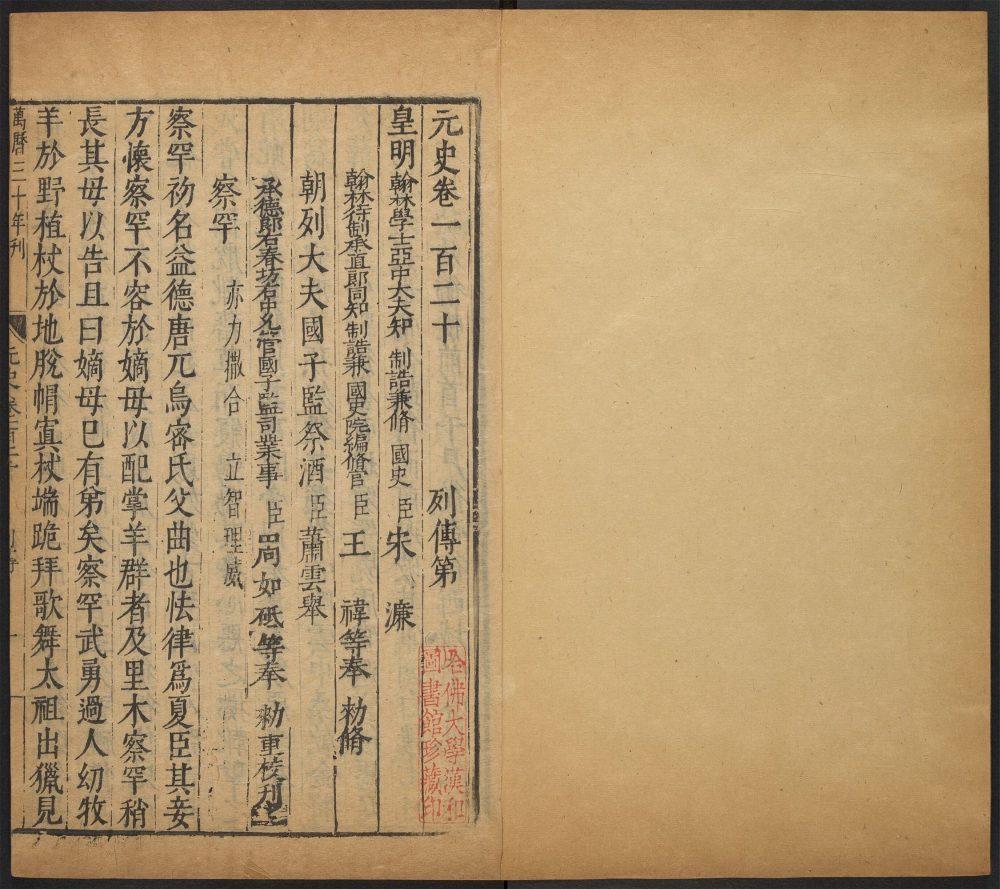 元史卷一百二十 列傳第
皇明翰林學士亞中大夫知 制誥兼脩 國史 臣 宋 濂
翰林待制承直郎同知 制誥兼 國史院編脩官 臣 王 禕等奉 勑脩
朝列大夫國子監祭酒 臣 蕭雲舉
承德郎右春坊右中允管國子監司業事 臣 周如砥等奉 勑重校刊
察罕 亦力撒合 立智理威
察罕初名益德唐兀烏密氏父曲也怯律爲夏臣其妾
方懷察罕不容於嫡母以配掌羊群者及里木察罕稍
長其母以告且曰嫡母巳有弟矣察罕武勇過人幼牧
羊於野植杖於地脫帽寘杖端跪拜歌舞太祖出獵見
萬曆三十年刊 元史卷一百二十 一
哈佛大學漢和
圖書館珍藏印